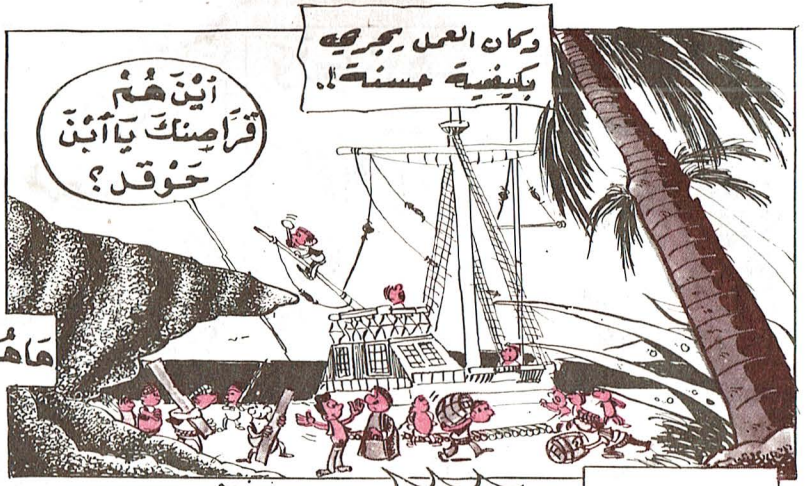 وكان العمل يجري
بكيفية حسنة !..
أَيْنَ هُمْ
قَرَاصِنَتُكَ يَا ٱبْنَ
حَوْقَل ؟